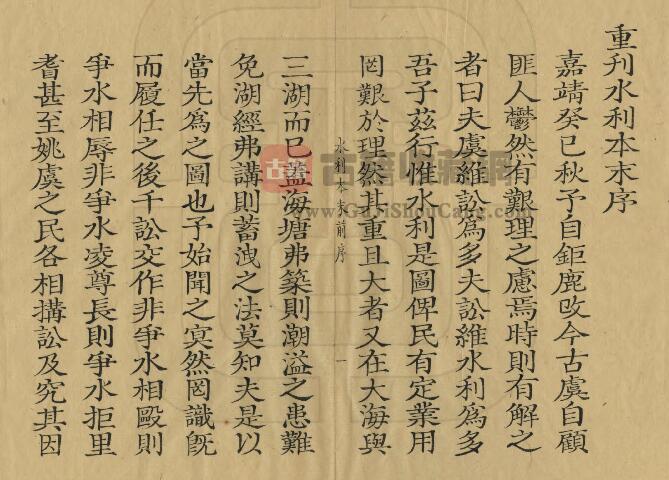 重刋水利本末序
嘉靖癸巳秋予自鉅鹿改令古虞自顧
匪人鬱然有艱理之慮焉時則有解之
者曰夫虞維訟為多夫訟維水利為多
吾子茲行惟水利是圖俾民有定業用
罔艱於理然其重且大者又在大海與
水利本末前序
一
三湖而已蓋海塘弗築則潮溢之患難
免湖經弗講則蓄洩之法莫知夫是以
當先為之圖也予始聞之寞然罔識旣
而履任之後千訟交作非爭水相毆則
爭水相辱非爭水凌尊長則爭水拒里
耆甚至姚虞之民各相搆訟及究其因
古籍收藏网
www.GuJiShouCang.com